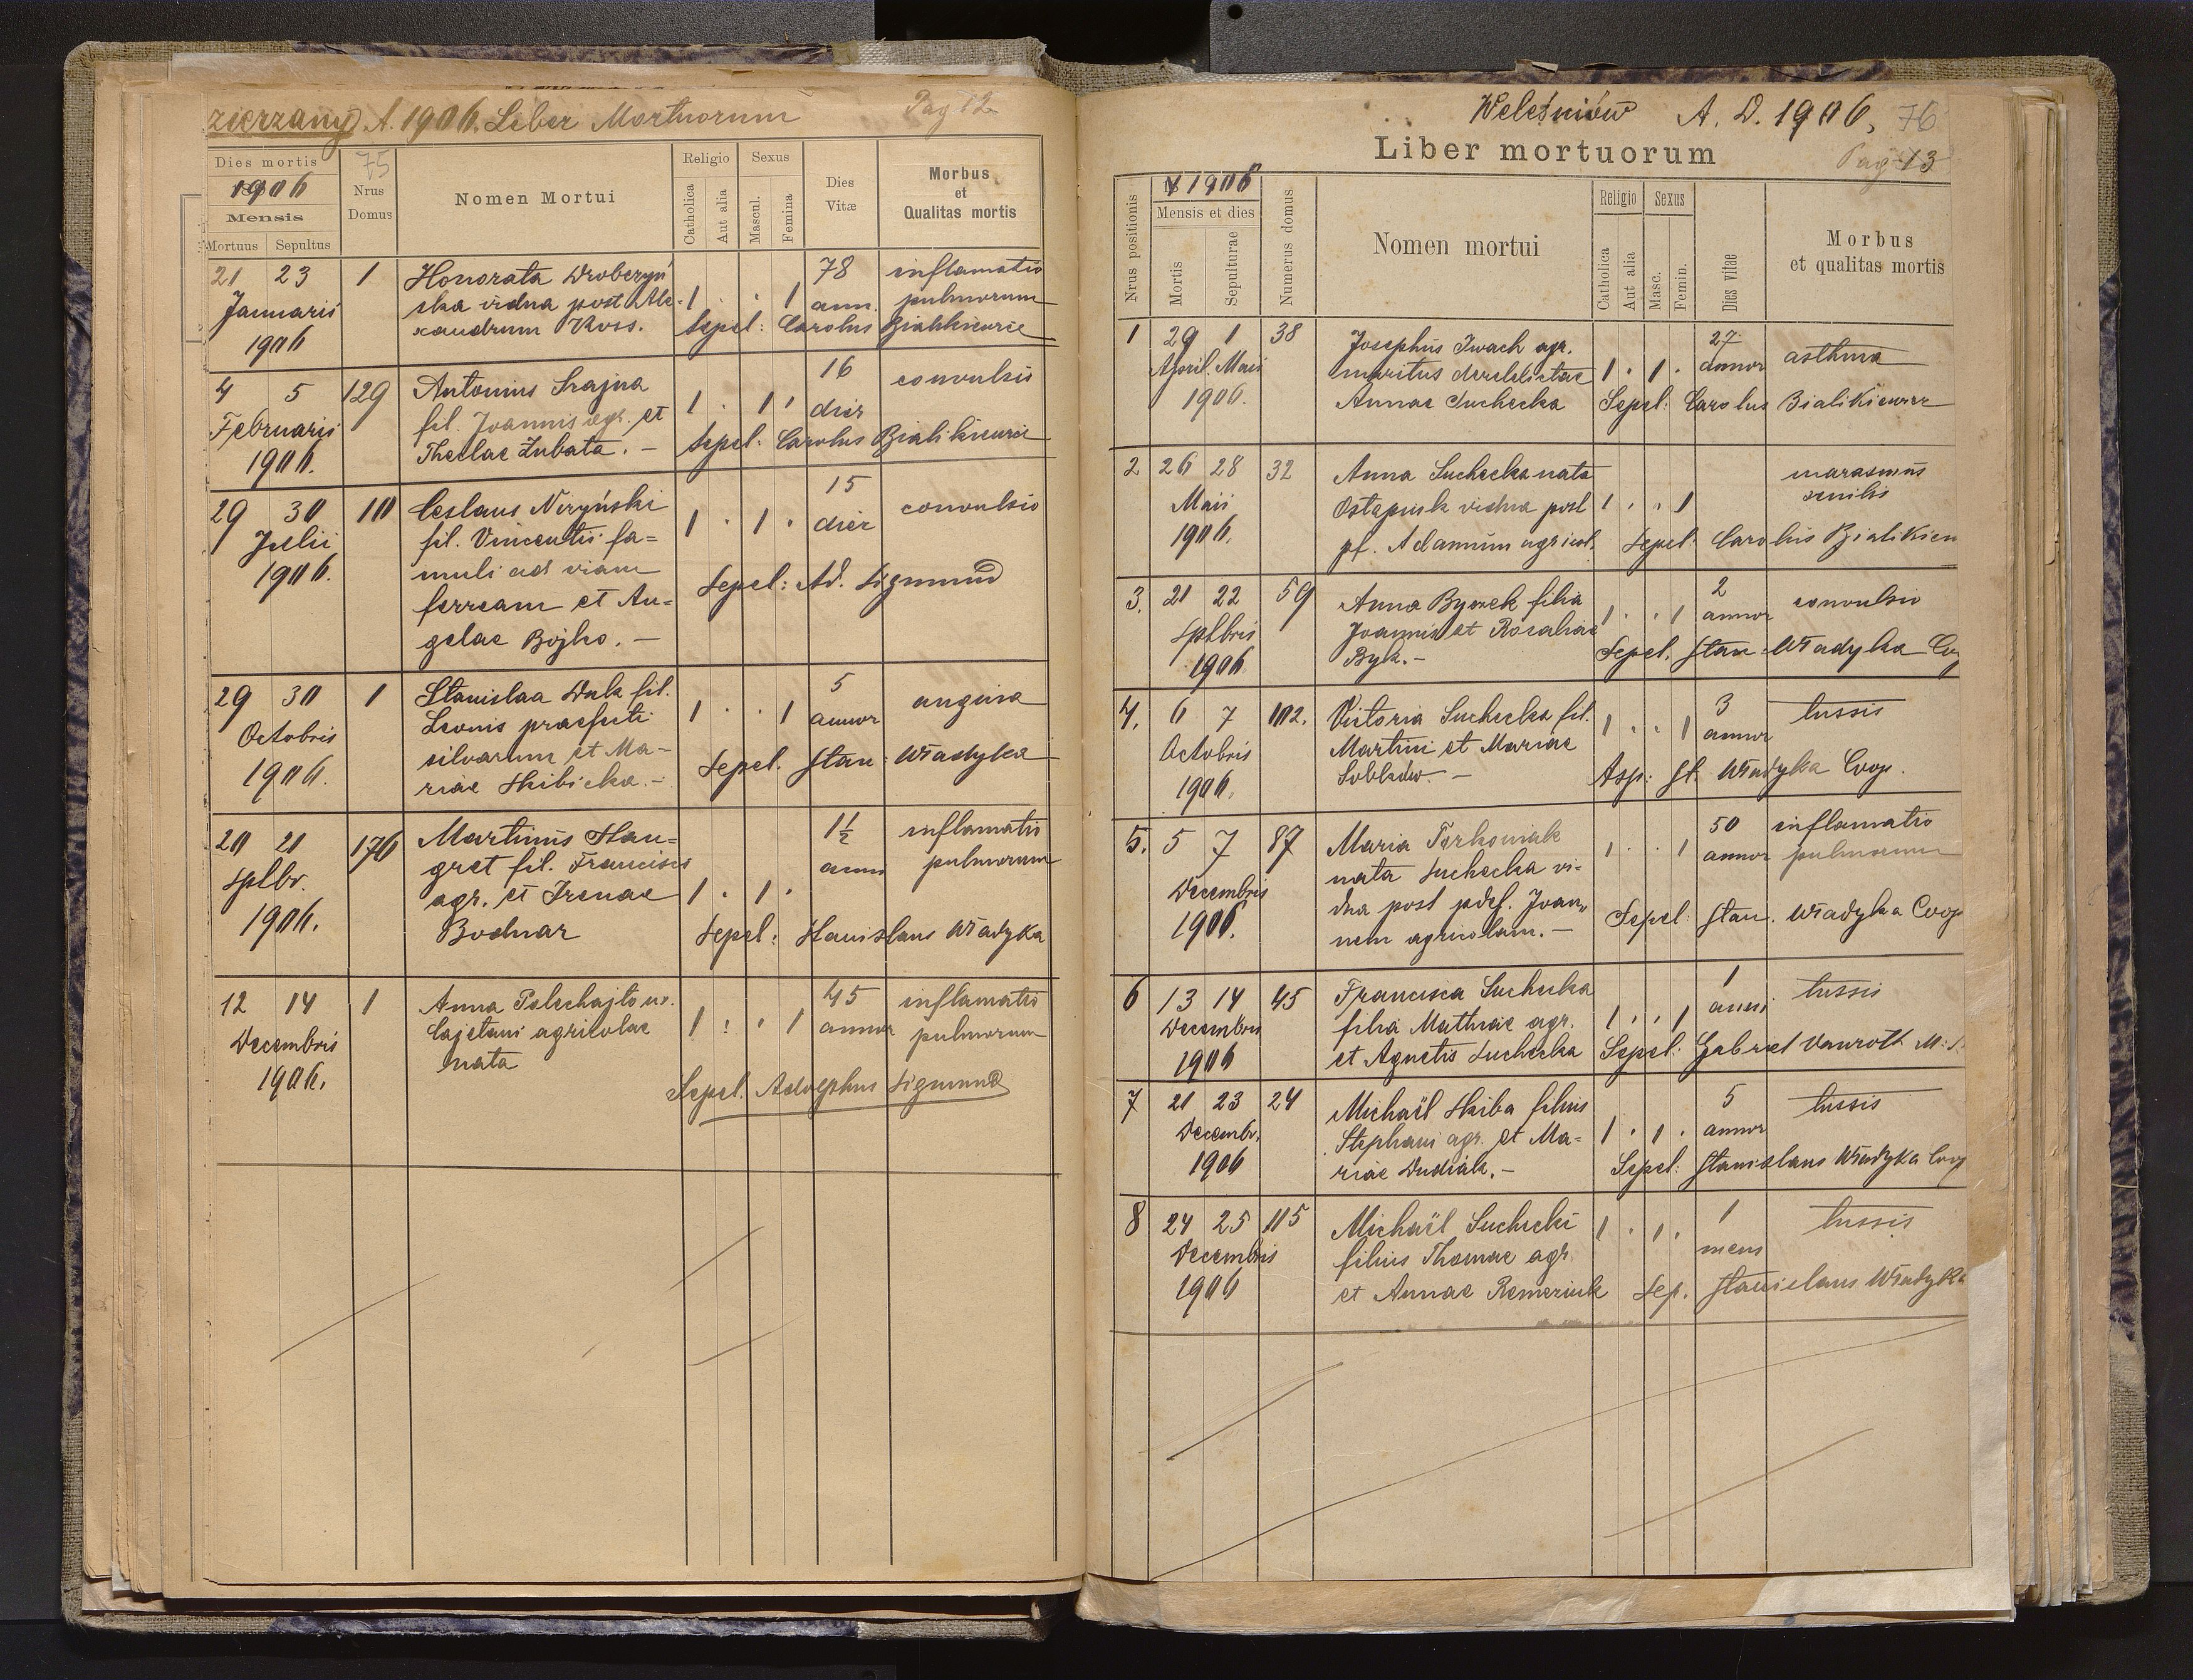 zierzany A. 1906. Leber Mortuorum Pag 12
Dies mortis
1906
Mensis
Mortuus Sepultus
75
Nrus
Domus
Nomen Mortui
Religio
Catholica
Aut alia
Sexus
Mascul.
Femina
Dies
Vitæ
Morbus
et
Qualitas mortis
21 23 1 Honorata Drobczyń 78 inflamatio
Januarii ska vidua post Ale- 1 . . 1 ann. pulmorum
1906 xandrum Koss. Sepel: Carolus Bialikiewicz
4 5 129 Antonius Szajna 16 convulsio
Februarii fil. Joannis agr. et 1 . 1 . dier
1906. Theclae Zubata. — Sepel: Carolus Bialikiewicz
29 30 10 Ceslaus Niryński 15 convulsio
Julii fil. Vincentii fa= 1 . 1 . dier
1906. muli ad viam
ferream et An= Sepel: Ad. Sigmund
gelae Bojko. —
29 30 1 Stanislaa Duk fil. 5 angina
Octobris Leonis praefecti 1 . . 1 annor
1906. silvarum et Ma- Sepel. Stan: Władyka
riae Skibicka. —
20 21 176 Martinus Stan= 1½ inflamatio
Sptbr. gret fil. Francisci anni pulmorum
1906. agr. et Irenae 1 . 1 .
Bodnar Sepel: Stanislaus Władyka
12 14 1 Anna 45 inflamatio
Decembris Cajetani agricolae 1 . . 1 annor pulmorum
1906. nata
Sepel. Adolphus Sigmund
Weleśniów A. D. 1906, 76
Liber mortuorum Pag 13
Nrus positionis
1906
Mensis et dies
Mortis
Sepulturae
Numerus domus
Nomen mortui
Religio
Catholica
Aut alia
Sexus
Masc.
Femin.
Dies vitae
Morbus
et qualitas mortis
1 29 1 38 Josephus Iwach agr. 27 asthma
April. Maii maritus derelictae 1 . 1 . annor
1906. Annae Suchecka Sepel: Carolus Bialikiewicz
2 26 28 32 Anna Suchecka nata marasmus
Maii Ostapiuk vidua post 1 . . 1 senilis
1906. pf. Adamum agricol. Sepel: Carolus Bialikiew
3. 21 22 59 Anna Bycrek filia 2 convulsio
Sptbris Joannis et Rosaliae 1 . . 1 annor
1906 Byk. — Sepel. Stan: Władyka Co
4. 6 7 102. Victoria Suchecka fil. 3 tussis
Octobris Martini et Mariae 1 . . 1 annor
1906. — Asp: St. Władyka Coop.
5. 5 7 87 Maria 50 inflamatio
Decembris nata Suchecka vi- 1 . . 1 annor pulmorum
1906. dua post pdef. Joan„
nem agricolam. — Sepel: Stan. Władyka Coop
6 13 14 45 Francisca Suchecka 1 tussis
Decembris filia Mathiae agr. 1 . . 1 anni
1906 et Agnetis Suchecka Sepel: Gabriel Vauroth M:
7 21 23 24 Michaël Skiba filius 5 tussis
Decembr. Stephani agr. et Ma= 1 . 1 . annor
1906 riae Dudiak. — Sepel: Stanislaus Władyka Coop
8 24 25 115 Michaël Suchecki 1 . 1 . 1 tussis
Decembris filius Thomae agr. mens
1906 et Annae Remeriuk Sep. Stanislaus Władyka